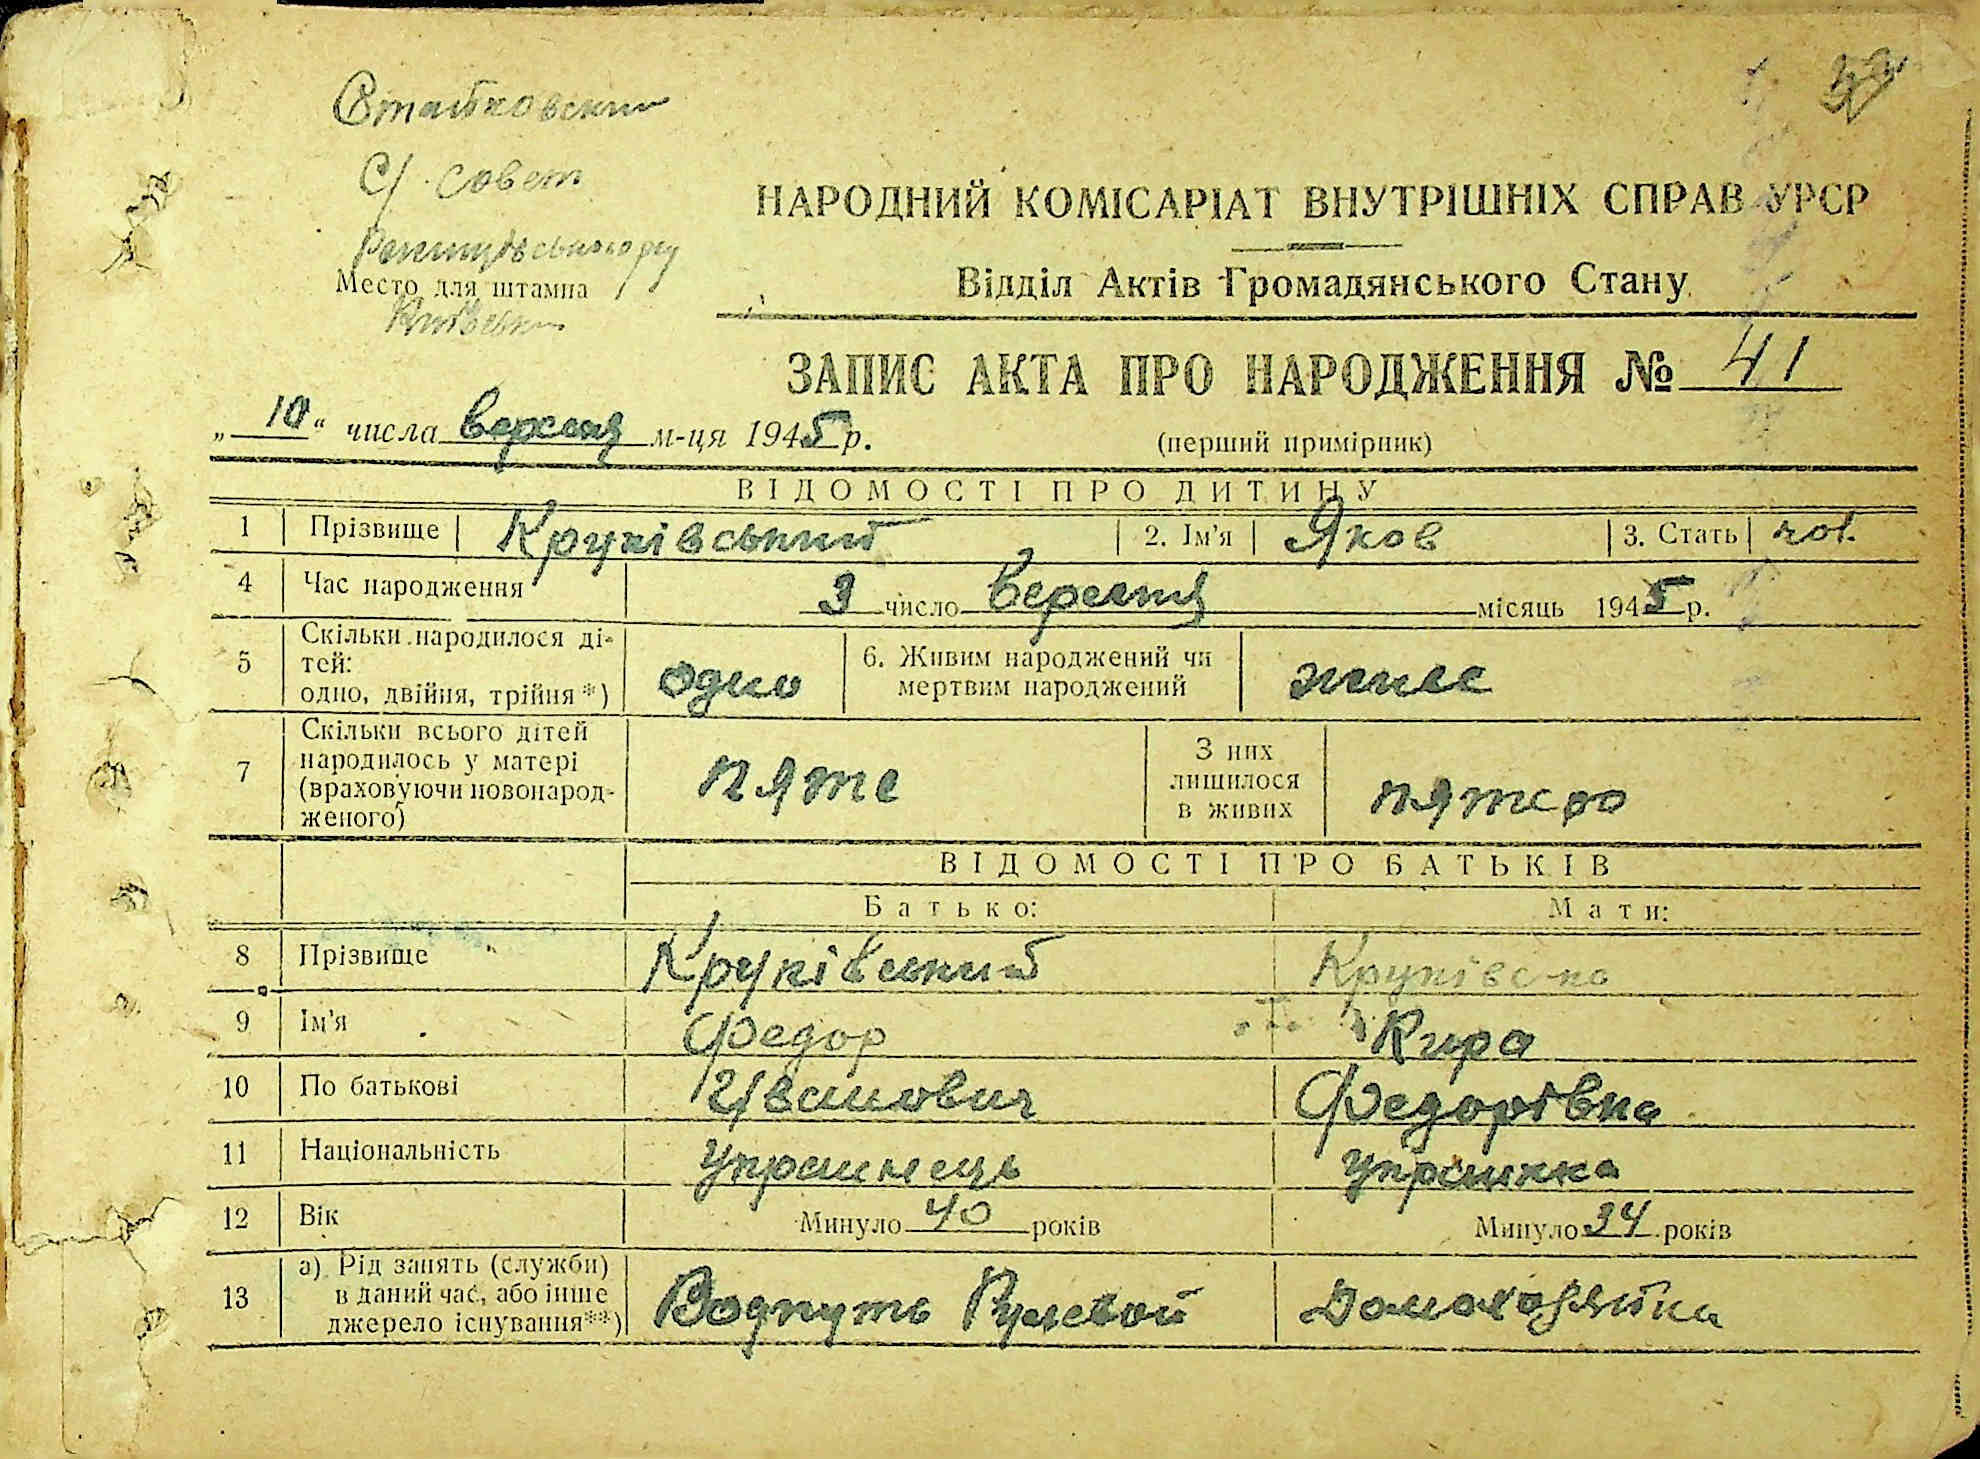 Стайковский
С/ совет
Место для штампа
НАРОДНИЙ КОМІСАРІАТ ВНУТРІШНІХ СПРАВ УРСР
Відділ Актів Громадянського Стану
ЗАПИС АКТА ПРО НАРОДЖЕННЯ № 41
„10“ числа вересня м-ця 1945 р.
(перший примірник)
ВІДОМОСТІ ПРО ДИТИНУ
1 Прізвище Круківський 2. Ім'я Яков 3. Стать чол.
4 Час народження 3 число вересня місяць 1945 р.
5 Скільки народилося ді-
тей:
одно, двійня, трійня*) одно
6. Живим народжений чи
мертвим народжений живе
7 Скільки всього дітей
народилось у матері
(враховуючи новонарод-
женого) пяте
З них
лишилося
в живих пятеро
ВІДОМОСТІ ПРО БАТЬКІВ
Батько: Мати:
8 Прізвище Круківський Круківська
9 Ім'я Федор Кира
10 По батькові Іванович Федорівна
11 Національність Украинець Украинка
12 Вік Минуло 40 років Минуло 34 років
13 а) Рід занять (служби)
в даний час, або інше
джерело існування**) Водпуть Рулевой Домохозяйка